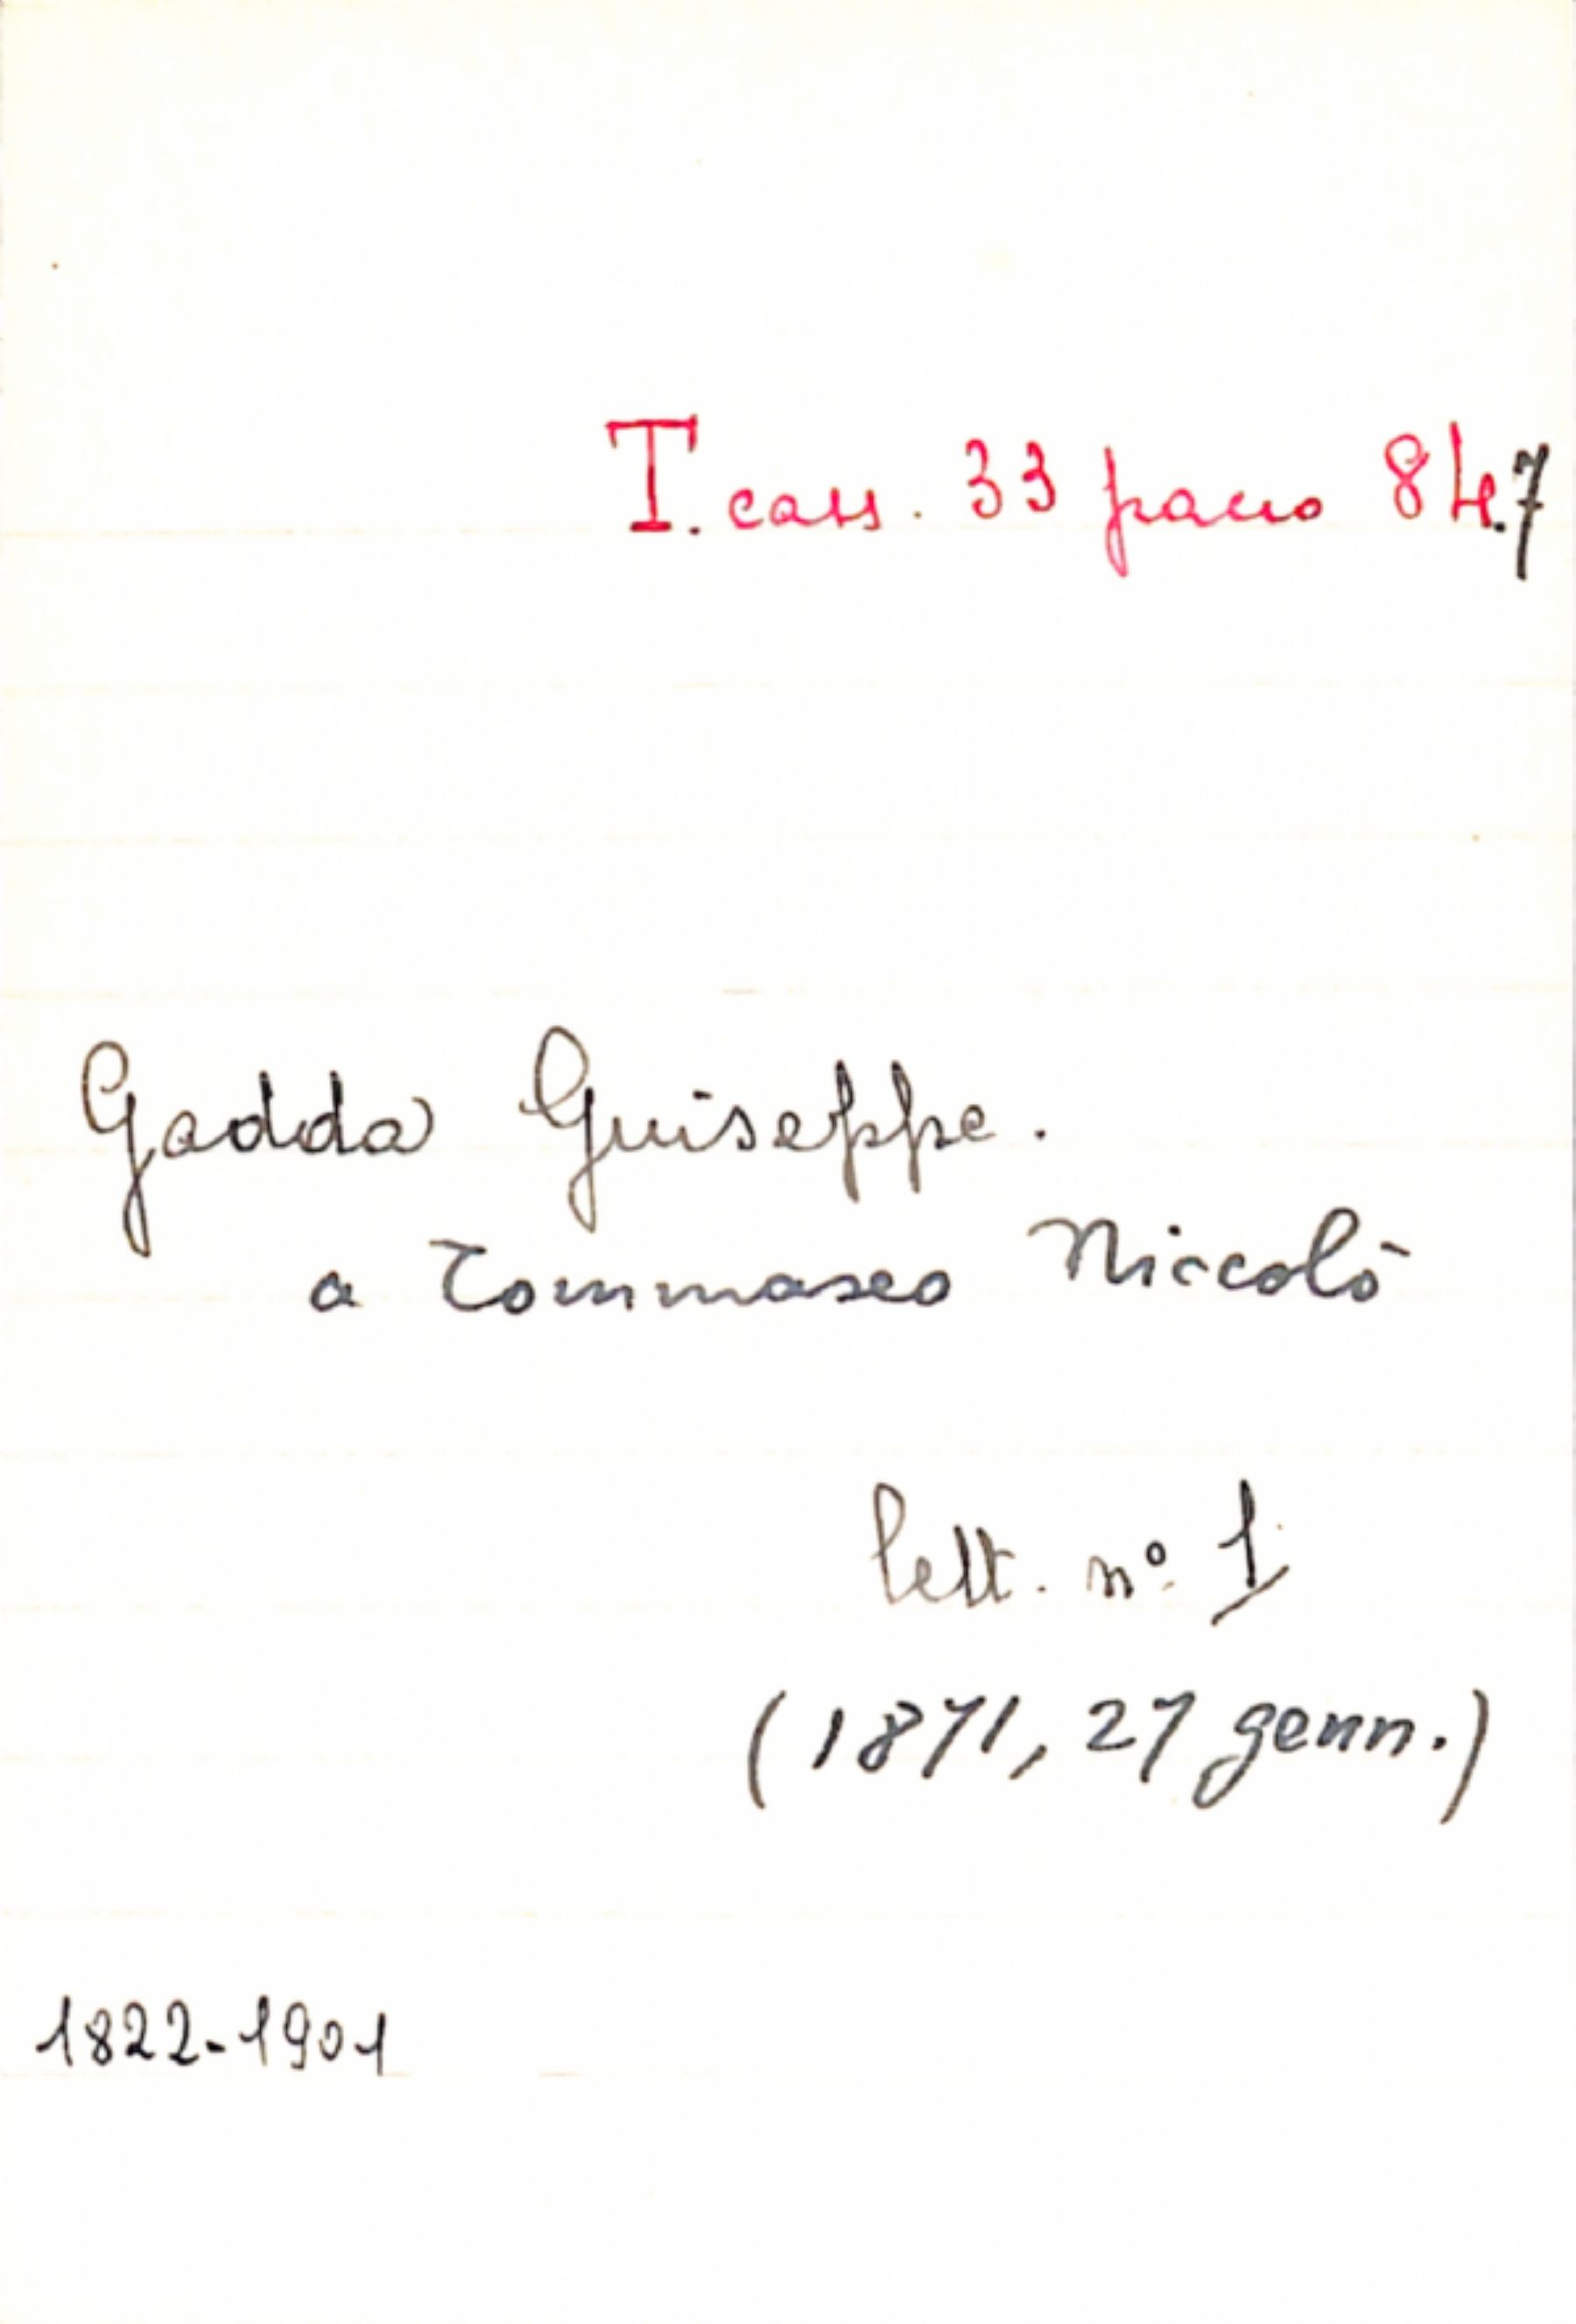 T. cass. 33 pacco 84.7
Gadda Guiseppe.
a Tommaseo Niccolò
lett. nº 1
(1871, 27 genn.)
1822-1901